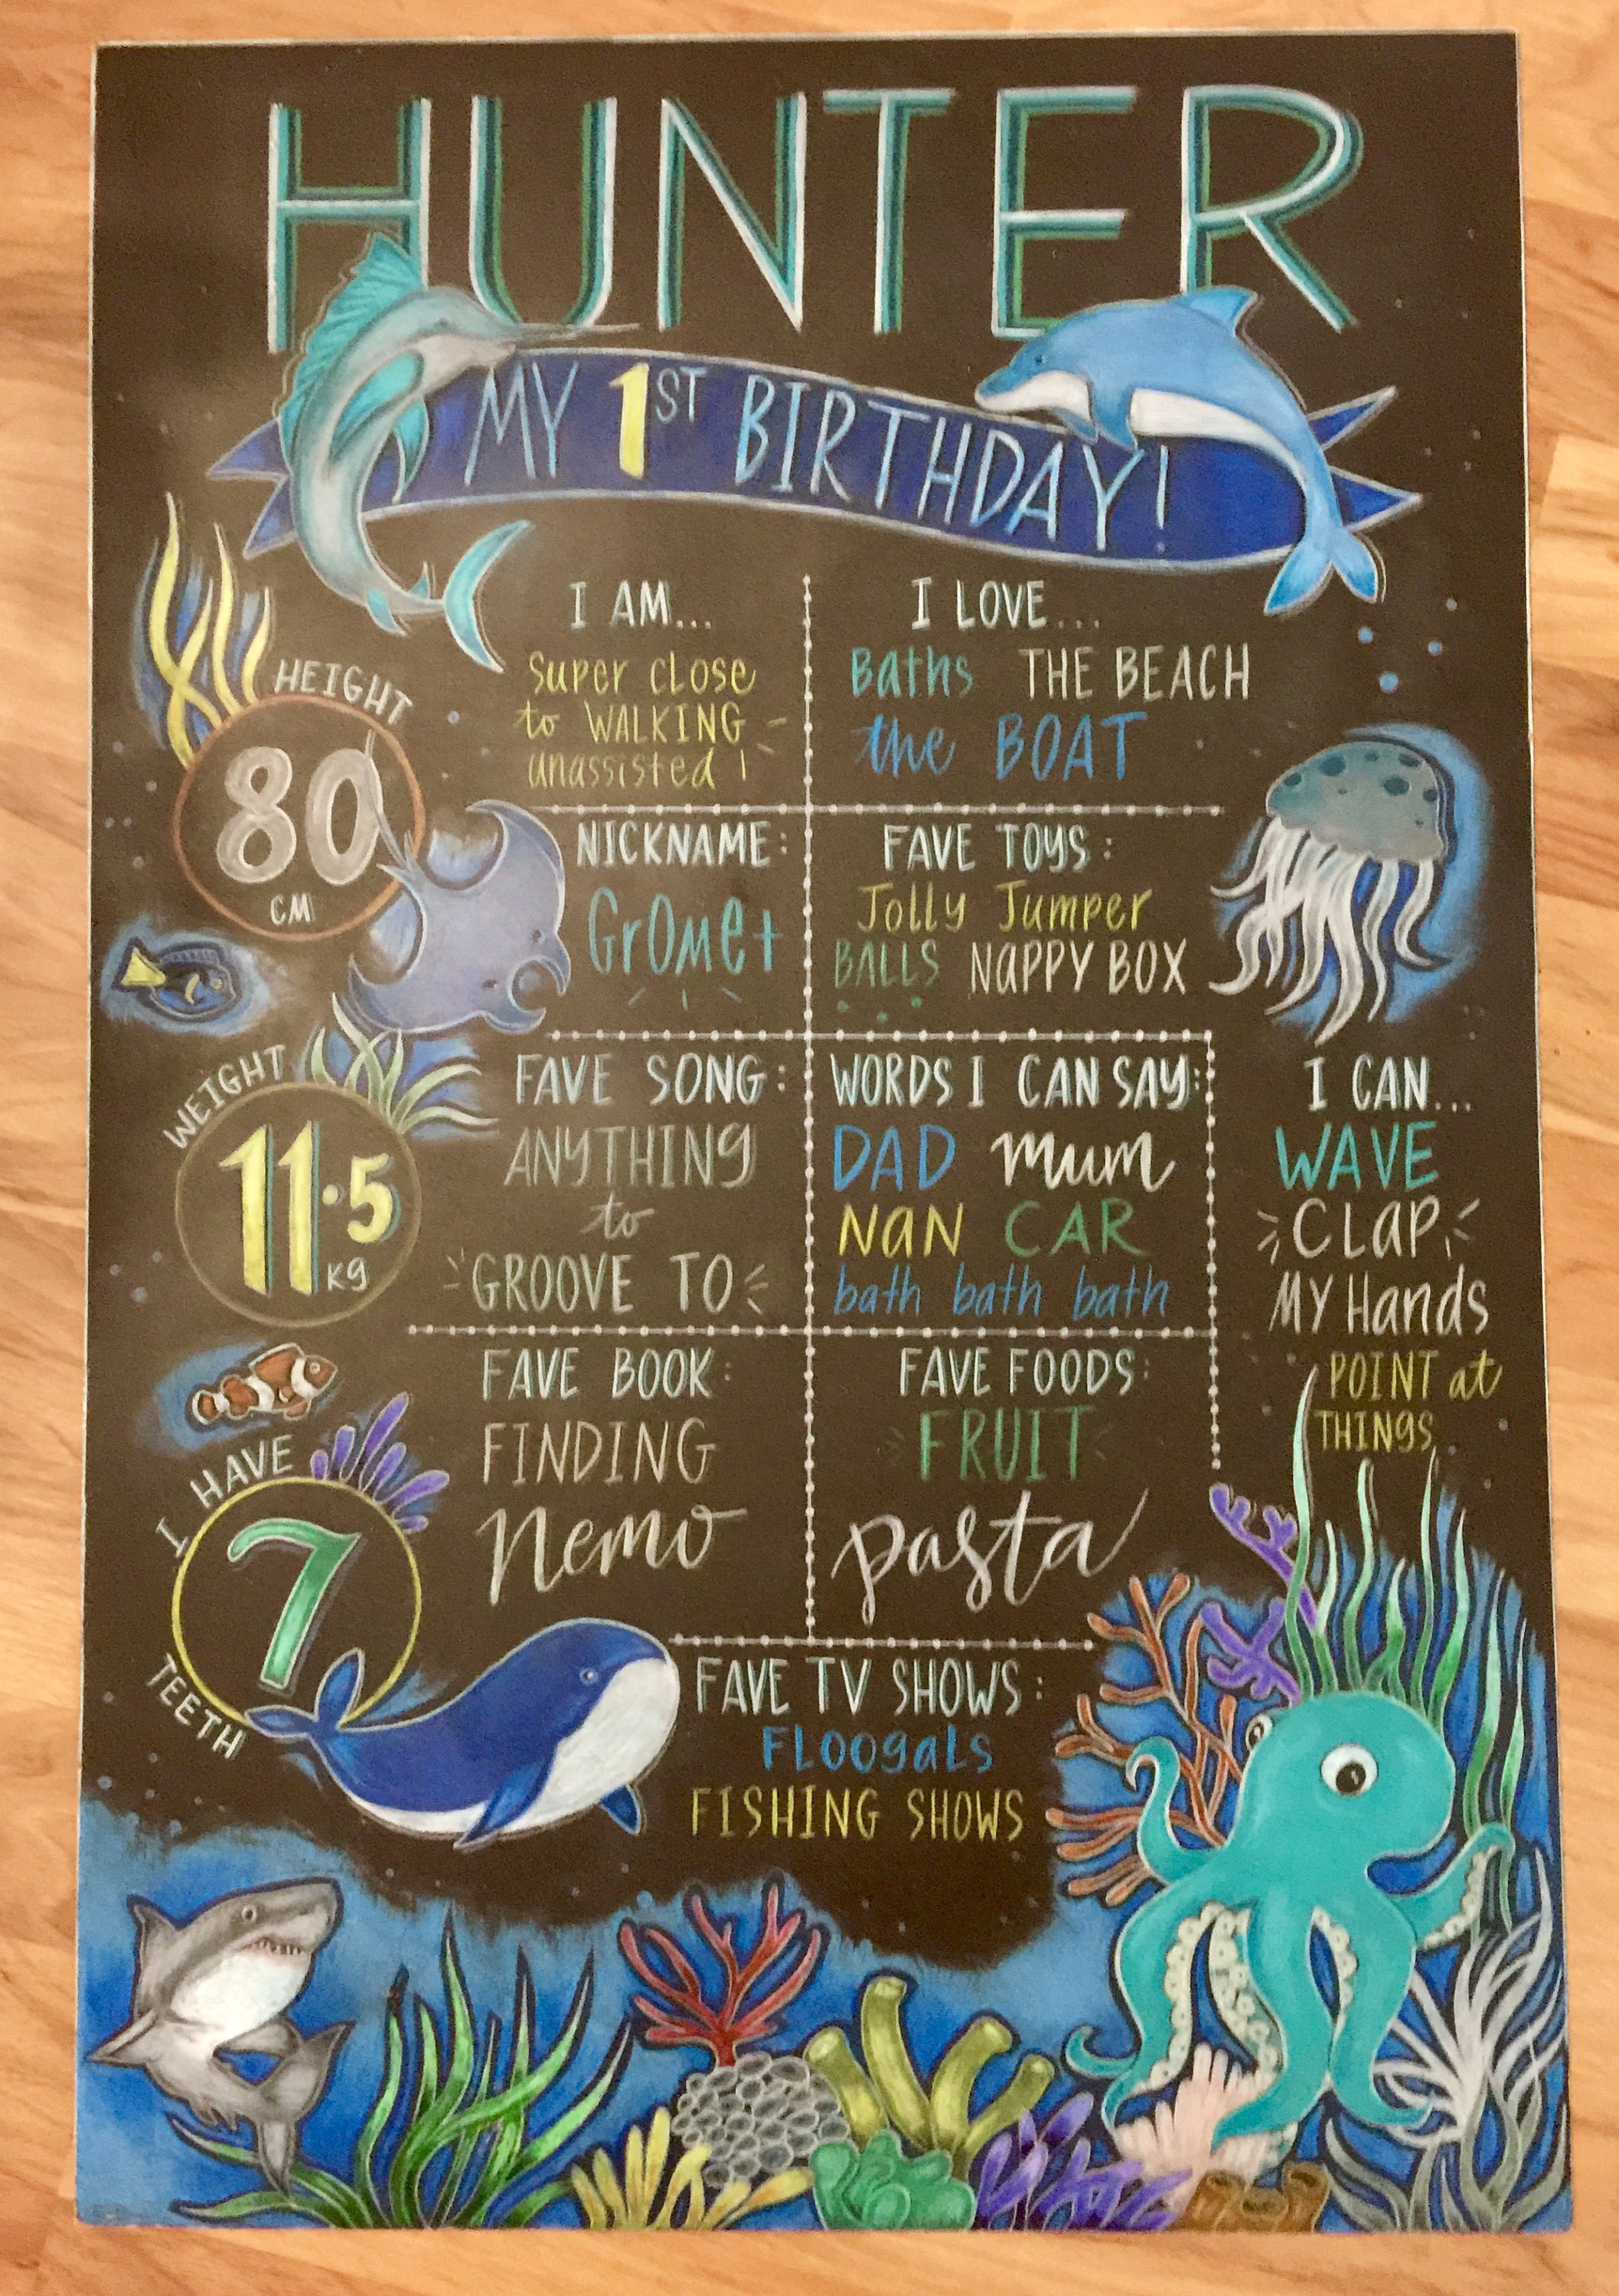 HUNTER
MY 1ST BIRTHDAY!
HEIGHT
80
CM
I AM...
Super close
to WALKING
unassisted !
I LOVE...
Baths THE BEACH
the BOAT
NICKNAME:
GrOMet
FAVE TOYS:
Jolly Jumper
BALLS NaPPY BOX
WEIGHT
11.5
KG
FAVE SONG:
ANYTHING
to
GROOVE TO
WORDS I CAN SAY:
DAD mum
NaN CAR
bath bath bath
I CAN...
WAVE
CLAP
MY Hands
POINT at
THINGS
I HAVE
7
TEETH
FAVE BOOK:
FINDING
Nemo
FAVE FOODS:
FRUIT
pasta
FAVE TV SHOWS:
FLOOgaLs
FISHING SHOWS